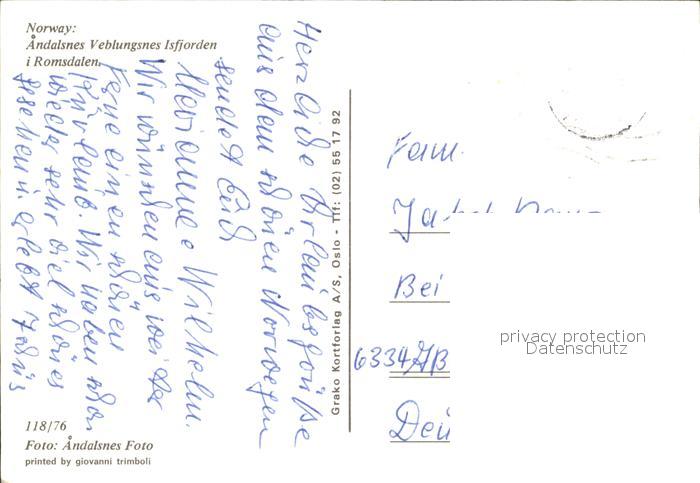 Norway:
Åndalsnes Veblungsnes Isfjorden
i Romsdalen.
Herzliche Urlaubsgrüße
aus dem schönen Norwegen
sendet Euch
Marianne & Wilhelm.
Wir wünschen euch
einen schönen
Wir haben schon
wieder sehr viel schönes
gesehen u. erlebt
118/76
Foto: Åndalsnes Foto
printed by giovanni trimboli
Grako Kortforlag A/S, Oslo - Tlf: (02) 55 17 92
Fam.
Bei
6334
privacy protection
Datenschutz